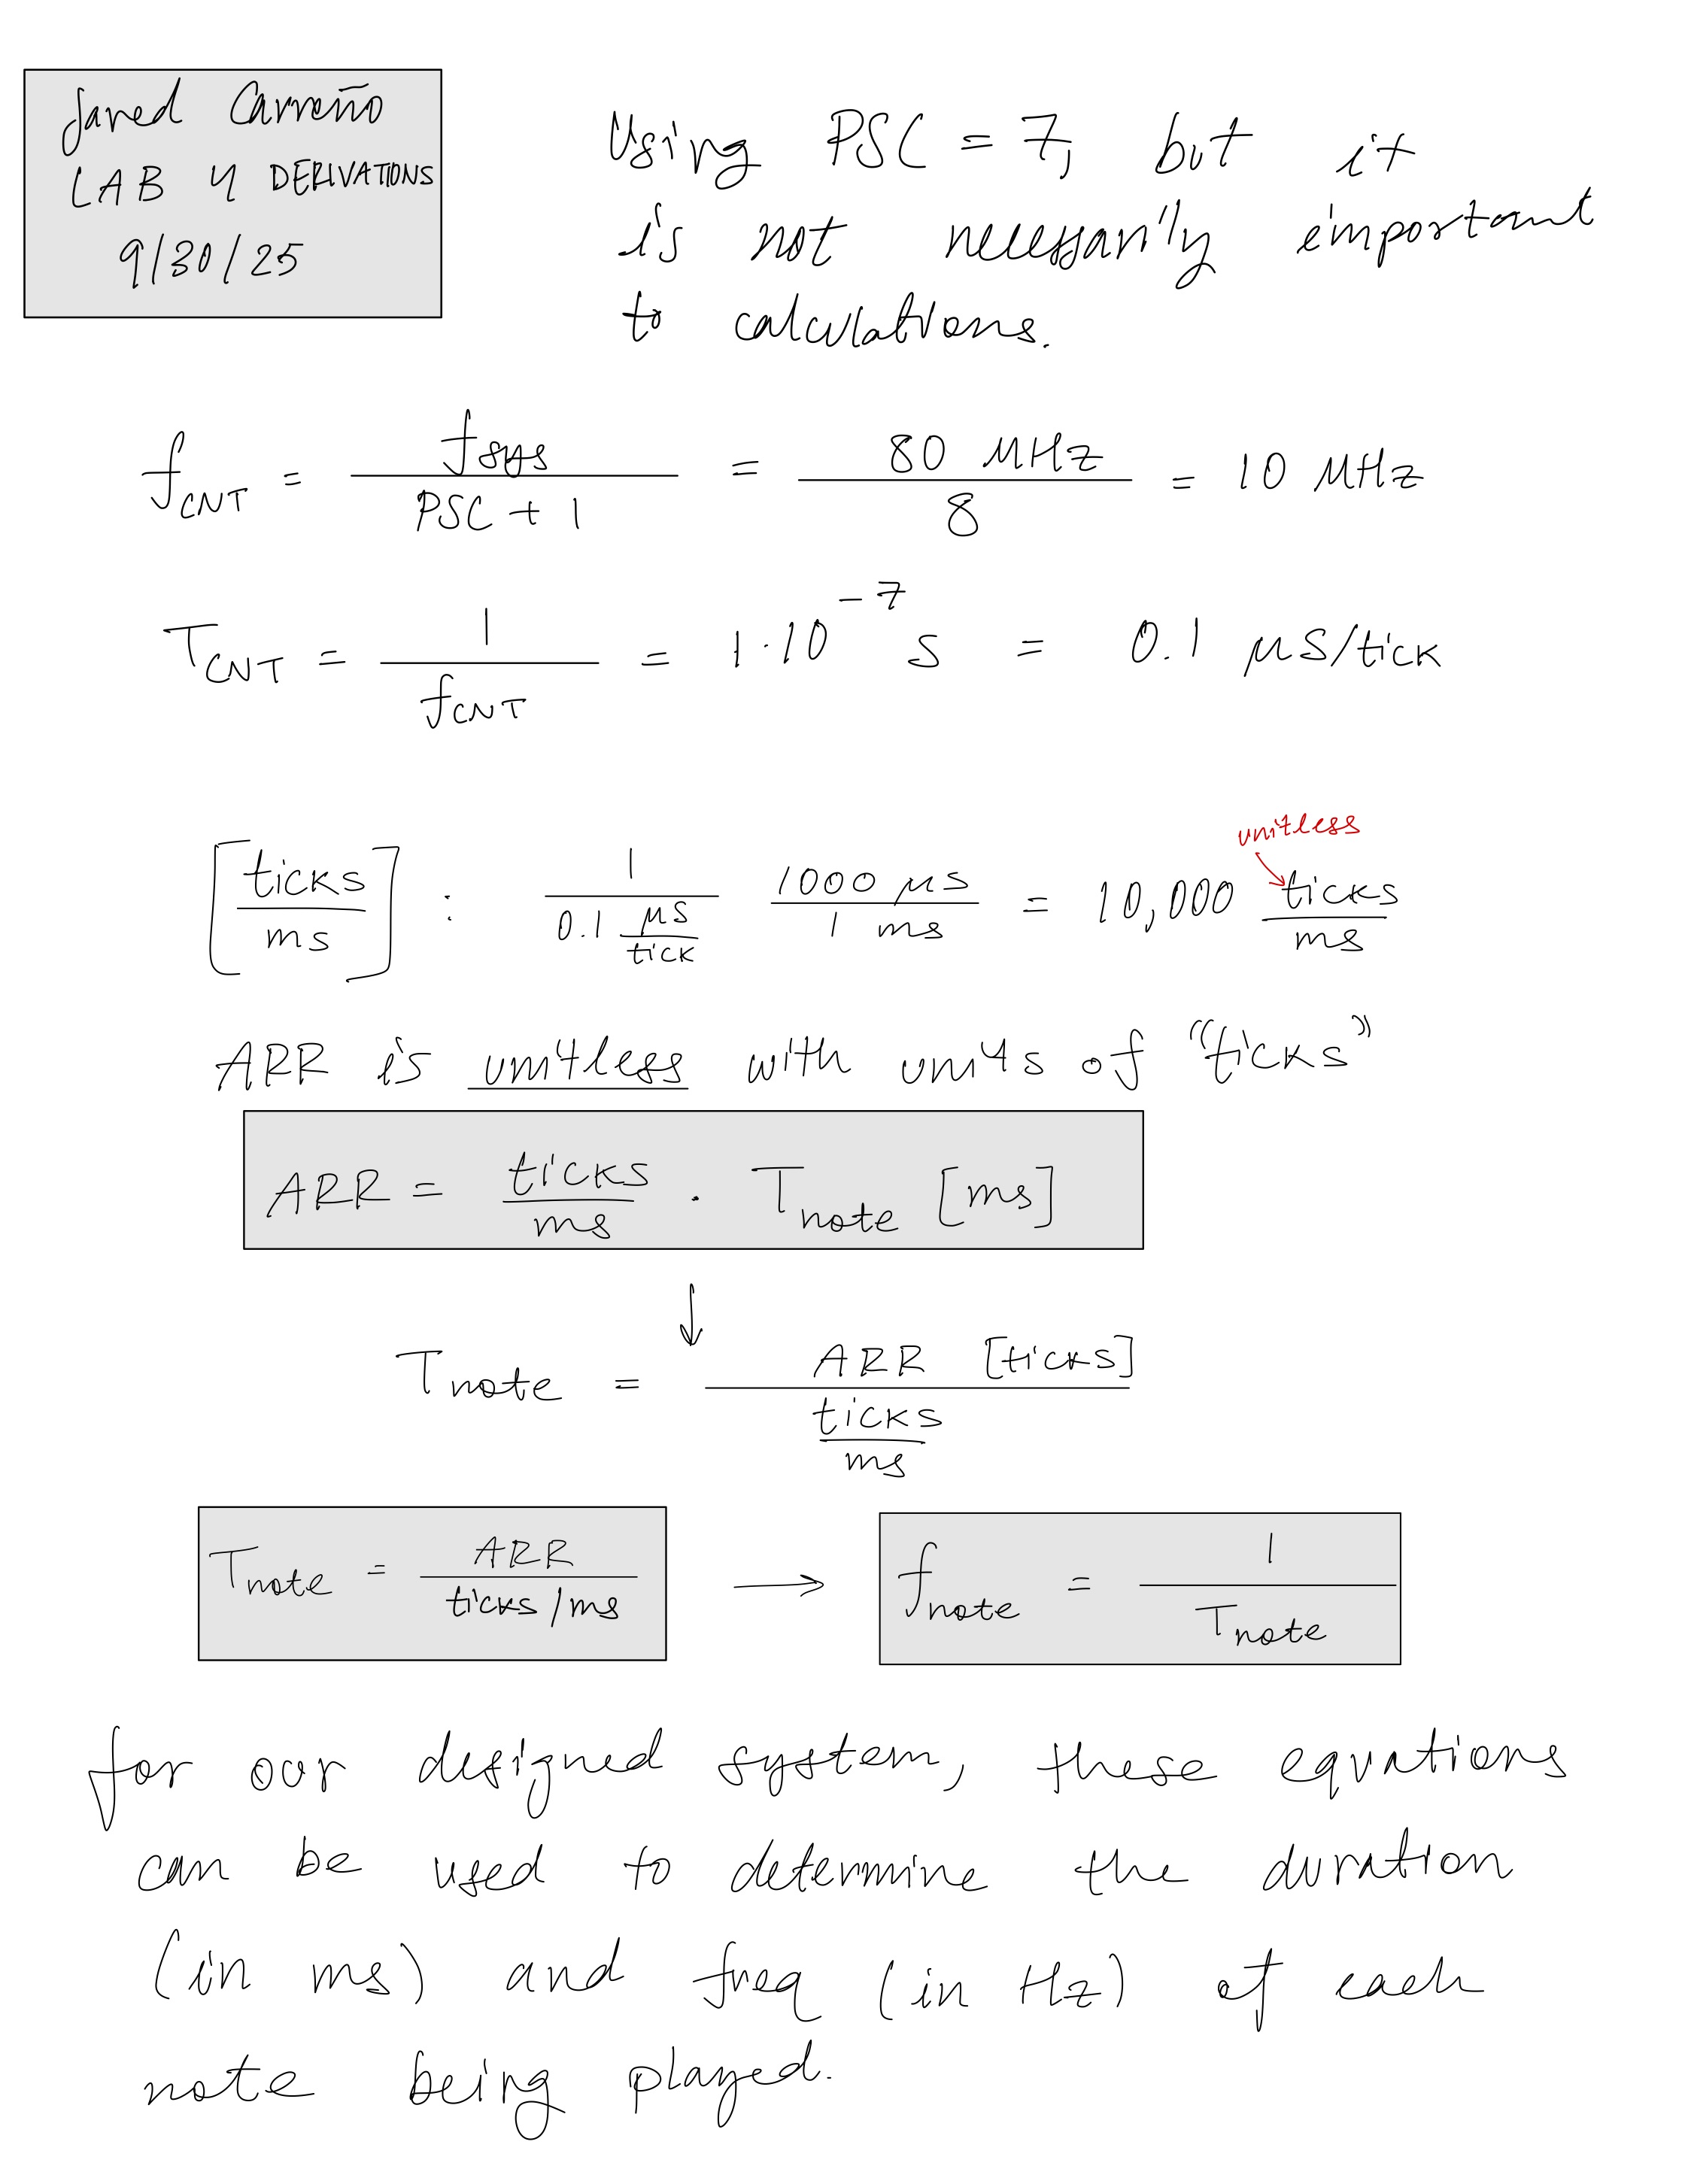 Jared Carreño
LAB 4 DERIVATIONS
9/30/25
Using PSC = 7, but it
is not necessarily important
to calculations.
f_CNT = f_sys / (PSC + 1) = 80 MHz / 8 = 10 MHz
T_CNT = 1 / f_CNT = 1·10^-7 s = 0.1 μs/tick
unitless
[ticks/ms] : 1 / (0.1 μs/tick) 1000 μs / 1 ms = 10,000 ticks/ms
ARR is unitless with units of "ticks"
ARR = ticks/ms · T_note [ms]
↓
T_note = ARR [ticks] / (ticks/ms)
T_note = ARR / (ticks/ms) → f_note = 1 / T_note
for our designed system, these equations
can be used to determine the duration
(in ms) and freq (in Hz) of each
note being played.